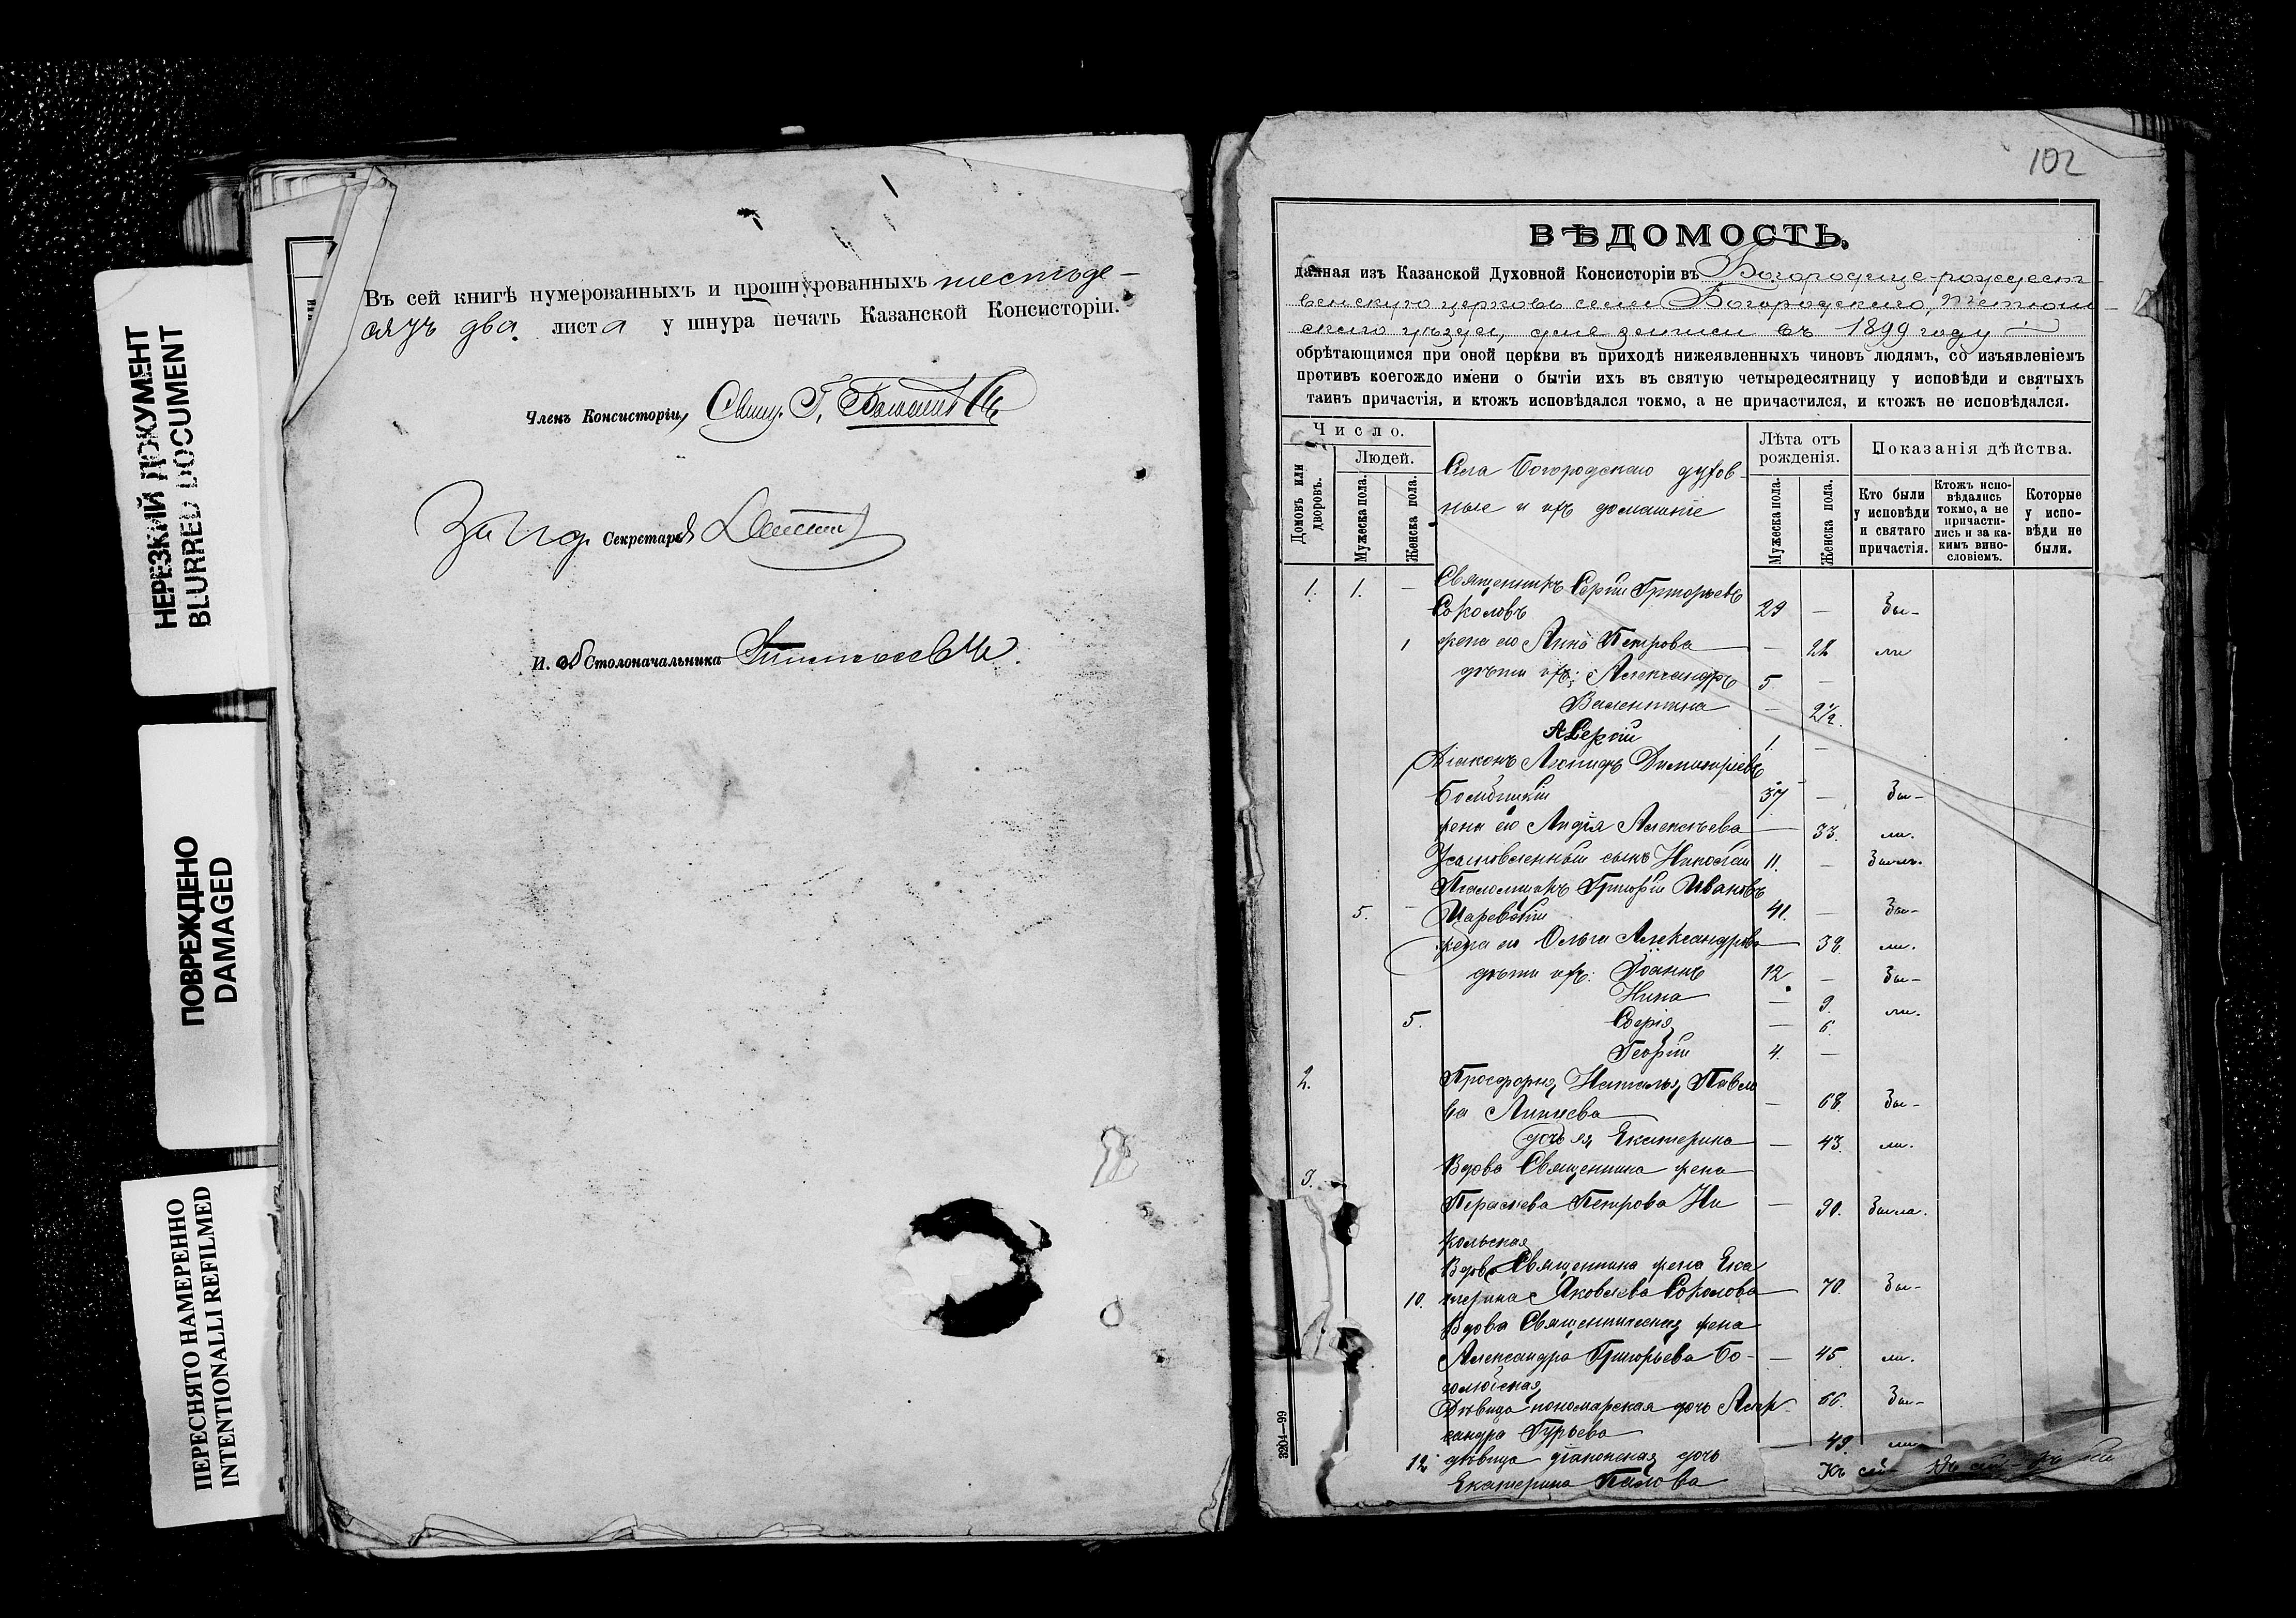 НЕРЕЗКИЙ ДОКУМЕНТ
BLURRED DOCUMENT
ПОВРЕЖДЕНО
DAMAGED
ПЕРЕСНЯТО НАМЕРЕННО
INTENTIONALLI REFILMED
Въ сей книгѣ нумерованныхъ и прошнурованныхъ шестьде-
сятъ два листа у шнура печать Казанской Консисторіи.
Членъ Консисторіи, Свящ. Г.
За Секретаря
И. об Столоначальника
102
ВѢДОМОСТЬ,
данная изъ Казанской Духовной Консисторіи въ Богородице-рождест
венскую церковь села Богородскаго, Тетюш
скаго уѣзда, для записи въ 1899 году
обрѣтающимся при оной церкви въ приходѣ нижеявленныхъ чиновъ людямъ, со изъявленіемъ
противъ коегождо имени о бытіи ихъ въ святую четыредесятницу у исповѣди и святыхъ
таинъ причастія, и ктожъ исповѣдался токмо, а не причастился, и ктожъ не исповѣдался.
Число.
Людей.
Домовъ или дворовъ.
Мужеска пола.
Женска пола.
Села Богородскаго духов-
ные и ихъ домашніе
Лѣта отъ рожденія.
Мужеска пола.
Женска пола.
Показанія дѣйства.
Кто были у исповѣди и святаго причастія.
Ктожъ исповѣдались токмо, а не причастились и за каким винословіемъ.
Которые у исповѣди не были.
1. 1. — Священникъ Сергій Григорьевъ
Соколовъ 29 — Бы-
1 жена его Анна Петрова — 22 ли
дѣти ихъ: Александръ 5 —
Валентина — 2½.
Сергій 1. —
Діаконъ Леонидъ Димитріевъ
37 — Бы-
жена его Лидія Алексѣева — 33. ли.
Усыновленный сынъ Николай 11. — Былъ.
Псаломщикъ Григорій Ивановъ
5. Царевскій 41. — Бы-
жена его Ольга Александрова — 38. ли.
дѣти ихъ: Іоаннъ 12. — Бы-
Нина — 9. ли.
5. — 6.
Георгій 4. —
2. Просфорня Наталья Павло
ва — 68. Бы-
дочь ея Екатерина — 43. ли.
3. Вдова Священника жена
Параскева Петрова Ни — 90. Была.
кольская
Вдова Священника жена Ека
10. терина Яковлева Соколова — 70. Бы-
Вдова Священническая жена
Александра Григорьева Бо- — 45. ли.
голюбская
Дѣвица пономарская дочь Алек 66. Бы-
сандра Гурьева
— 49. ли
12. дѣвица діаконская дочь
Екатерина
3204—99